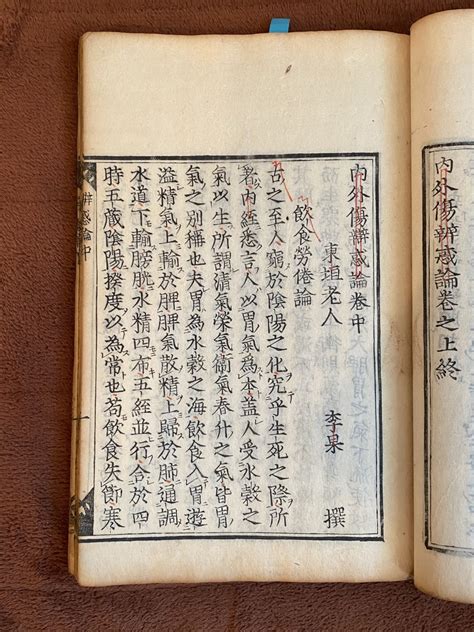 內外傷辨惑論卷之上終
內外傷辨惑論卷中
東垣老人 李果 撰
飲食勞倦論
古之至人窮於陰陽之化究乎生死之際所
著內經悉言人以胃氣爲本盖人受水穀之
氣以生所謂清氣榮氣衞氣春升之氣皆胃
氣之別稱也夫胃爲水穀之海飲食入胃遊
溢精氣上輸於脾脾氣散精上歸於肺通調
水道下輸膀胱水精四布五經並行合於四
時五藏陰陽揆度以爲常也苟飲食失節寒
辨惑論中
一